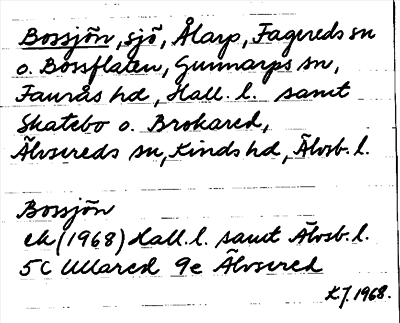 Bossjön, sjö, Ålarp, Fagereds sn
o. Bossflaten, Gunnarps sn,
Faurås hd, Hall. l. samt
Skatebo o. Brokared,
Älvsereds sn, Kinds hd, Älvsb. l.
Bossjön
ek (1968) Hall. l. samt Älvsb. l.
5C Ullared 9e Älvsered
K.J. 1968.